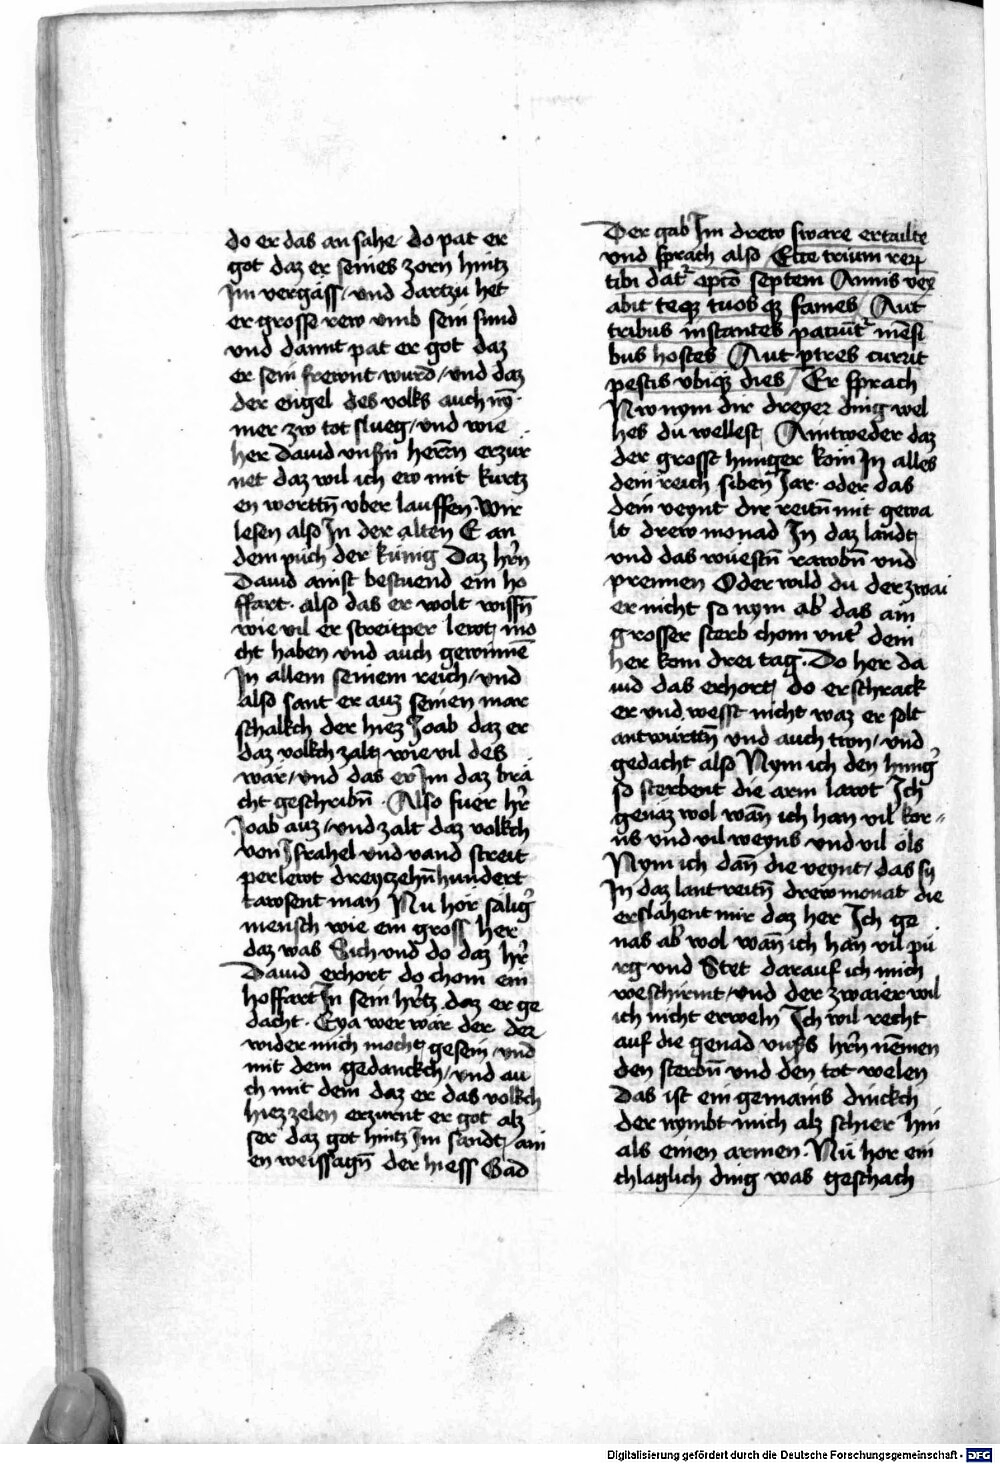 do er das an sahe do pat er
got daz er seines zorn hintz
Im vergäss / und dartzu het
er grosse rew vmb sein sund
vnd damit pat er got daz
er sein frewnt wurd / vnd daz
der engel des volks auch ny̅
mer zw tot slueg / vnd wie
her Dauid vnsn̅ herrn erzur
net daz wil ich ew mit kurtz
en worttn̅ vber lauffen. Wir
lesen also In der alten E an
dem puch der kunig Daz hr̅n
Dauid ainst bestuend ein ho
ffart. also das er wolt wissn̅
wie vil er streitper lewt mo
cht haben vnd auch gewinne̅
In allem seinem reich / vnd
also sant er auz seinen mar
schalkch der hiez Joab daz er
daz volkch zalt wie vil des
wär / vnd das er Im daz brä
cht geschribn̅. Also fuer hr̅
Joab auz / vnd zalt daz volkch
von Israhel vnd vand streit
perlewt dreyczehn̅hundert
tawsent man Nu hör salig̅
mensch wie ein gross her
daz was Sich vnd do daz hr̅
Dauid erhort do chom ein
hoffart In sein hr̅tz daz er ge
dacht. Eya wer wär der der
wider mich mocht gesein / vnd
mit dem gedanckch / vnd au
ch mit dem daz er das volkch
hiez zelen erzurnt er got alz
ser daz got hintz Im sandt ain
en weissagn̅ der hiess Gad
Der gab Im drew sware ertailte
vnd sprach also Ecce trium
tibi dat̅ opc̅o septem Annis
abit teq; tuos q; fames / Aut
tribus instantes me̅si
bus hostes Aut p̅ tres currit
pestis vbiq; dies / Er sprach
Nw nym dir dreyer ding wel
hes du wellest Aintweder daz
der grosse hunger kom In alles
dein reich siben Jar. oder das
dein veynt dir reitn̅ mit gewa
lt drew monad In daz landt
vnd das wüestn̅ rawbn̅ vnd
prennen Oder wild du der zwai
er nicht so nym ab̅ das ain
grosser sterb chom vnt̅ dein
her kom drei tag. Do her da
uid das erhort do erschrack
er vnd wesst nicht waz er solt
antwurttn̅ vnd auch twn / vnd
gedacht also Nym ich den hung̅
so sterbent die arm lawt Ich
genaz wol wan̅ ich han vil kor=
ns vnd vil weyns vnd vil öls
Nym ich dan̅ die veynt / das sy
In daz lant reitn̅ drew monat die
erslahent mir daz her Ich ge
nas ab̅ wol wan̅ ich han vil pu
rg vnd Stet darauf ich mich
weschirmt / vnd der zwaier wil
ich nicht erweln Ich wil recht
auf die genad vnss hr̅n ne̅men
den sterbn̅ vnd den tot welen
Das ist ein gemains dinckch
der nymbt mich alz schier hin
als einen armen. Nu hor ein
chlaglich ding was geschach
Digitalisierung gefördert durch die Deutsche Forschungsgemeinschaft - DFG